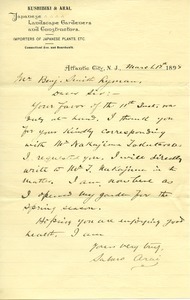 KUSHIBIKI & ARAI,
Japanese
Landscape Gardeners
and Constructors.
IMPORTERS OF JAPANESE PLANTS, ETC.
Connecticut Ave. and Boardwalk.
Atlantic City, N. J., March 13th 1897
Mr. Benj. Smith Lyman,
Dear Sir:-
Your favor of the 11th inst. was
duly at hand. I should thank you
for your kindly corresponding
with Mr. Nakajima
I requested you. I will directly
write to Mr. T. Nakajima in
. I am
I opened my garden for the
spring season.
Hoping you are enjoying good
health, I am
Yours very truly,
Arai